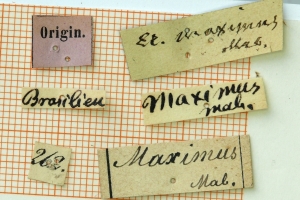 Origin.
Er. Maximus
Mab.
Brasilien
Maximus
mab.
Maximus
Mab.